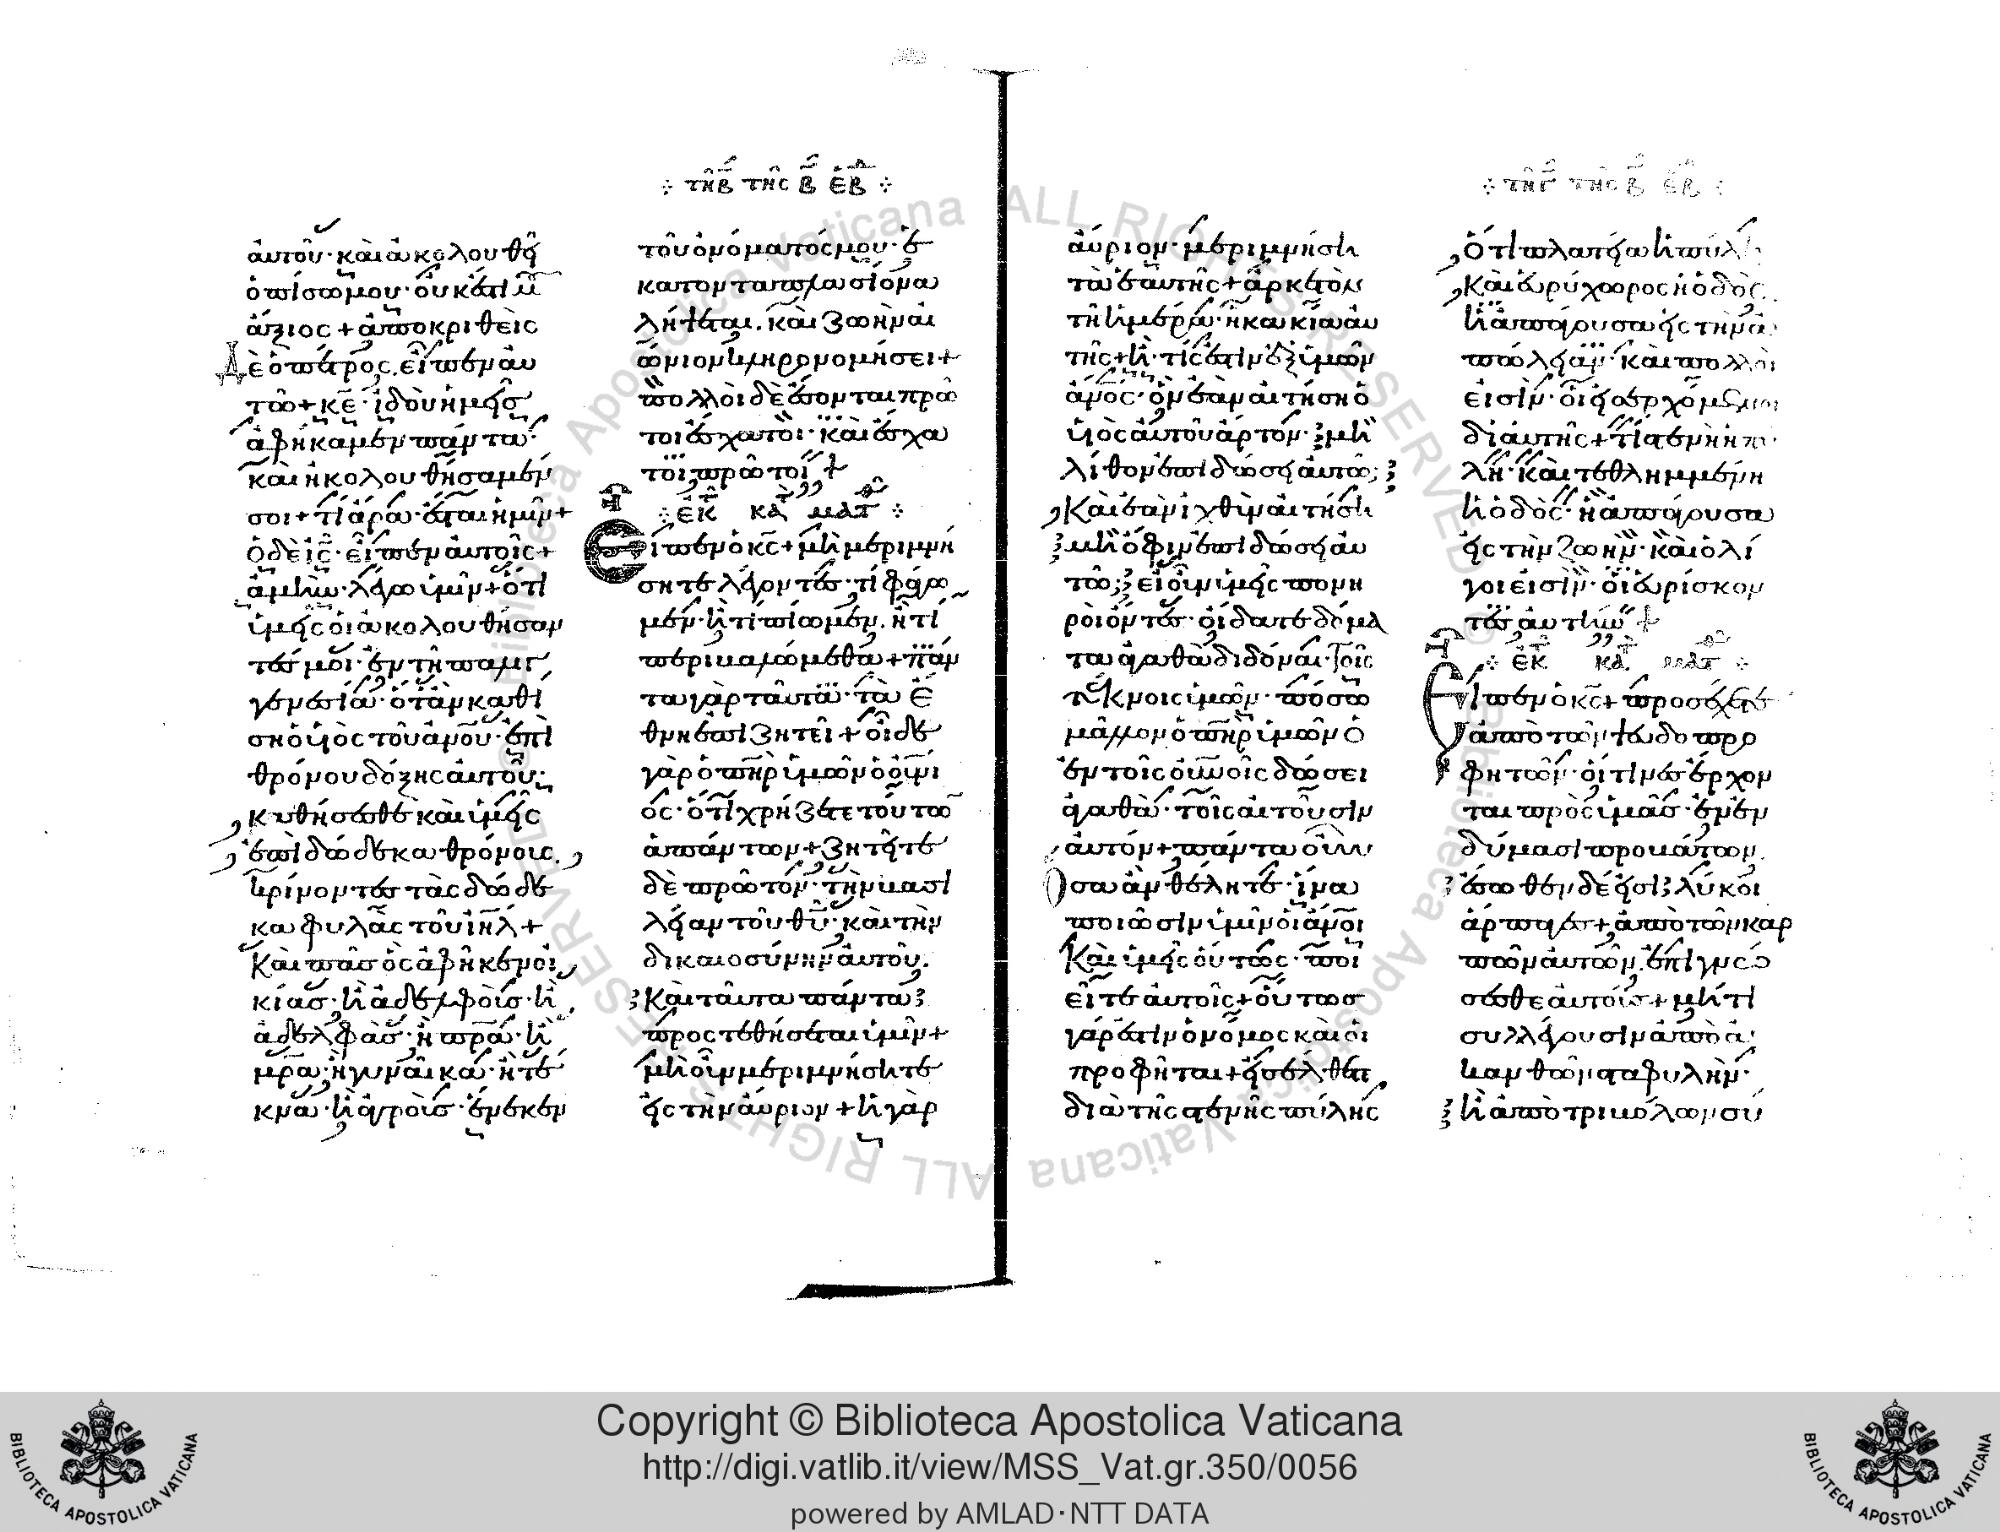 αὐτοῦ· καὶ ἀκολουθεῖ
ὀπίσω μου· οὐκ ἔστι μου
ἄξιος + ἀποκριθεὶς
δὲ ὁ πέτρος, εἶπεν αὐ
τῶ + ἰδοὺ ἡμεῖς
ἀφήκαμεν πάντα·
καὶ ἠκολουθήσαμέν
σοι + τί ἄρα ἔσται ἡμῖν +
ὁ δὲ ις· εἶπεν αὐτοῖς +
ἀμὴν λέγω ὑμῖν + ὅτι
ὑμεῖς οἱ ἀκολουθήσαν
τές μοι· ἐν τῆ παλιγ
γενεσία· ὅταν καθί
ση ὁ υἱὸς τοῦ ανου· ἐπὶ
θρόνου δόξης αὐτοῦ·
καθήσεσθε καὶ ὑμεῖς
ἐπὶ δώδεκα θρόνοις,
κρίνοντες τὰς δώδε
κα φυλὰς τοῦ ιηλ +
Καὶ πᾶς ὃς ἀφῆκεν οἰ
κίας· ἢ ἀδελφοὺς· ἢ
ἀδελφὰς· ἢ πρα· ἢ
μρα· ἢ γυναῖκα· ἢ τέ
κνα· ἢ ἀγροὺς· ἕνεκεν
τῆ β τῆς β ἑβδ
τοῦ ὀνόματός μου· ἑ
κατονταπλασίονα
λήψεται, καὶ ζωὴν αἰ
ώνιον κληρονομήσει +
πολλοὶ δὲ ἔσονται πρῶ
τοι ἔσχατοι· καὶ ἔσχα
τοι πρῶτοι +
ἐκ κατὰ ματ
Εἶπεν ὁ κς + μὴ μεριμνή
σητε λέγοντες· τί φάγω
μεν· ἢ τί πίωμεν, ἢ τί
περιβαλώμεθα + πάν
τα γὰρ ταῦτα· τὰ ἔ
θνη ἐπιζητεῖ + οἶδε
γὰρ ὁ πηρ ὑμῶν ὁ οὐνι
ος· ὅτι χρήζετε τούτων
ἁπάντων + ζητεῖτε
δὲ πρῶτον· τὴν βασι
λείαν τοῦ θυ· καὶ τὴν
δικαιοσύνην αὐτοῦ.
Καὶ ταῦτα πάντα
προστεθήσεται ὑμῖν +
μὴ οὖν μεριμνήσητε
εἰς τὴν αὔριον + ἡ γὰρ
αὔριον· μεριμνήσει
τὰ ἑαυτῆς + ἀρκετὸν
τῆ ἡμέρα· ἡ κακία αὐ
τῆς + ἢ· τίς ἐστιν ἐξ ὑμῶν
ανος· ὃν ἐὰν αἰτήση ὁ
υἱὸς αὐτοῦ ἄρτον· μὴ
λίθον ἐπιδώσει αὐτῶ;
Καὶ ἐὰν ἰχθὺν αἰτήση
μὴ ὄφιν ἐπιδώσει αὐ
τῶ; εἰ οὖν ὑμεῖς πονη
ροὶ ὄντες· οἴδατε δόμα
τα ἀγαθὰ διδόναι τοῖς
τέκνοις ὑμῶν· πόσω
μᾶλλον ὁ πηρ ὑμῶν ὁ
ἐν τοῖς οὐνοῖς δώσει
ἀγαθὰ· τοῖς αἰτοῦσιν
αὐτόν + πάντα οὖν
ὅσα ἂν θέλητε· ἵνα
ποιῶσιν ὑμῖν οἱ ανοι
Καὶ ὑμεῖς οὕτως· ποι
εῖτε αὐτοῖς + οὗτος
γάρ ἐστιν ὁ νόμος καὶ οἱ
προφῆται + εἰσέλθετε
διὰ τῆς στενῆς πύλης
τῆ γ τῆς β ἑβ
ὅτι πλατεῖα ἡ πύλη
Καὶ εὐρύχωρος ἡ ὁδὸς
ἡ ἀπάγουσα εἰς τὴν ἀ
πώλειαν· καὶ πολλοί
εἰσιν· οἱ εἰσερχόμενοι
δι αὐτῆς + τί στενὴ ἡ πύ
λη· καὶ τεθλιμμένη
ἡ ὁδὸς· ἡ ἀπάγουσα
εἰς τὴν ζωὴν· καὶ ὀλί
γοι εἰσὶν· οἱ εὑρίσκον
τες αὐτὴν +
ἐκ κατὰ ματ
Εἶπεν ὁ κς + προσέχετε
ἀπὸ τῶν ψευδοπρο
φητῶν· οἵτινες ἔρχον
ται πρὸς ὑμᾶς· ἐν ἐν
δύμασι προβάτων,
ἔσωθεν δέ εἰσι λύκοι
ἅρπαγες + ἀπὸ τῶν καρ
πῶν αὐτῶν, ἐπιγνώ
σεσθε αὐτούς + μήτι
συλλέγουσιν ἀπὸ ἀ
κανθῶν σταφυλὴν·
ἢ ἀπὸ τριβόλων σύ
BIBLIOTECA APOSTOLICA VATICANA
Copyright © Biblioteca Apostolica Vaticana
http://digi.vatlib.it/view/MSS_Vat.gr.350/0056
powered by AMLAD·NTT DATA
BIBLIOTECA APOSTOLICA VATICANA